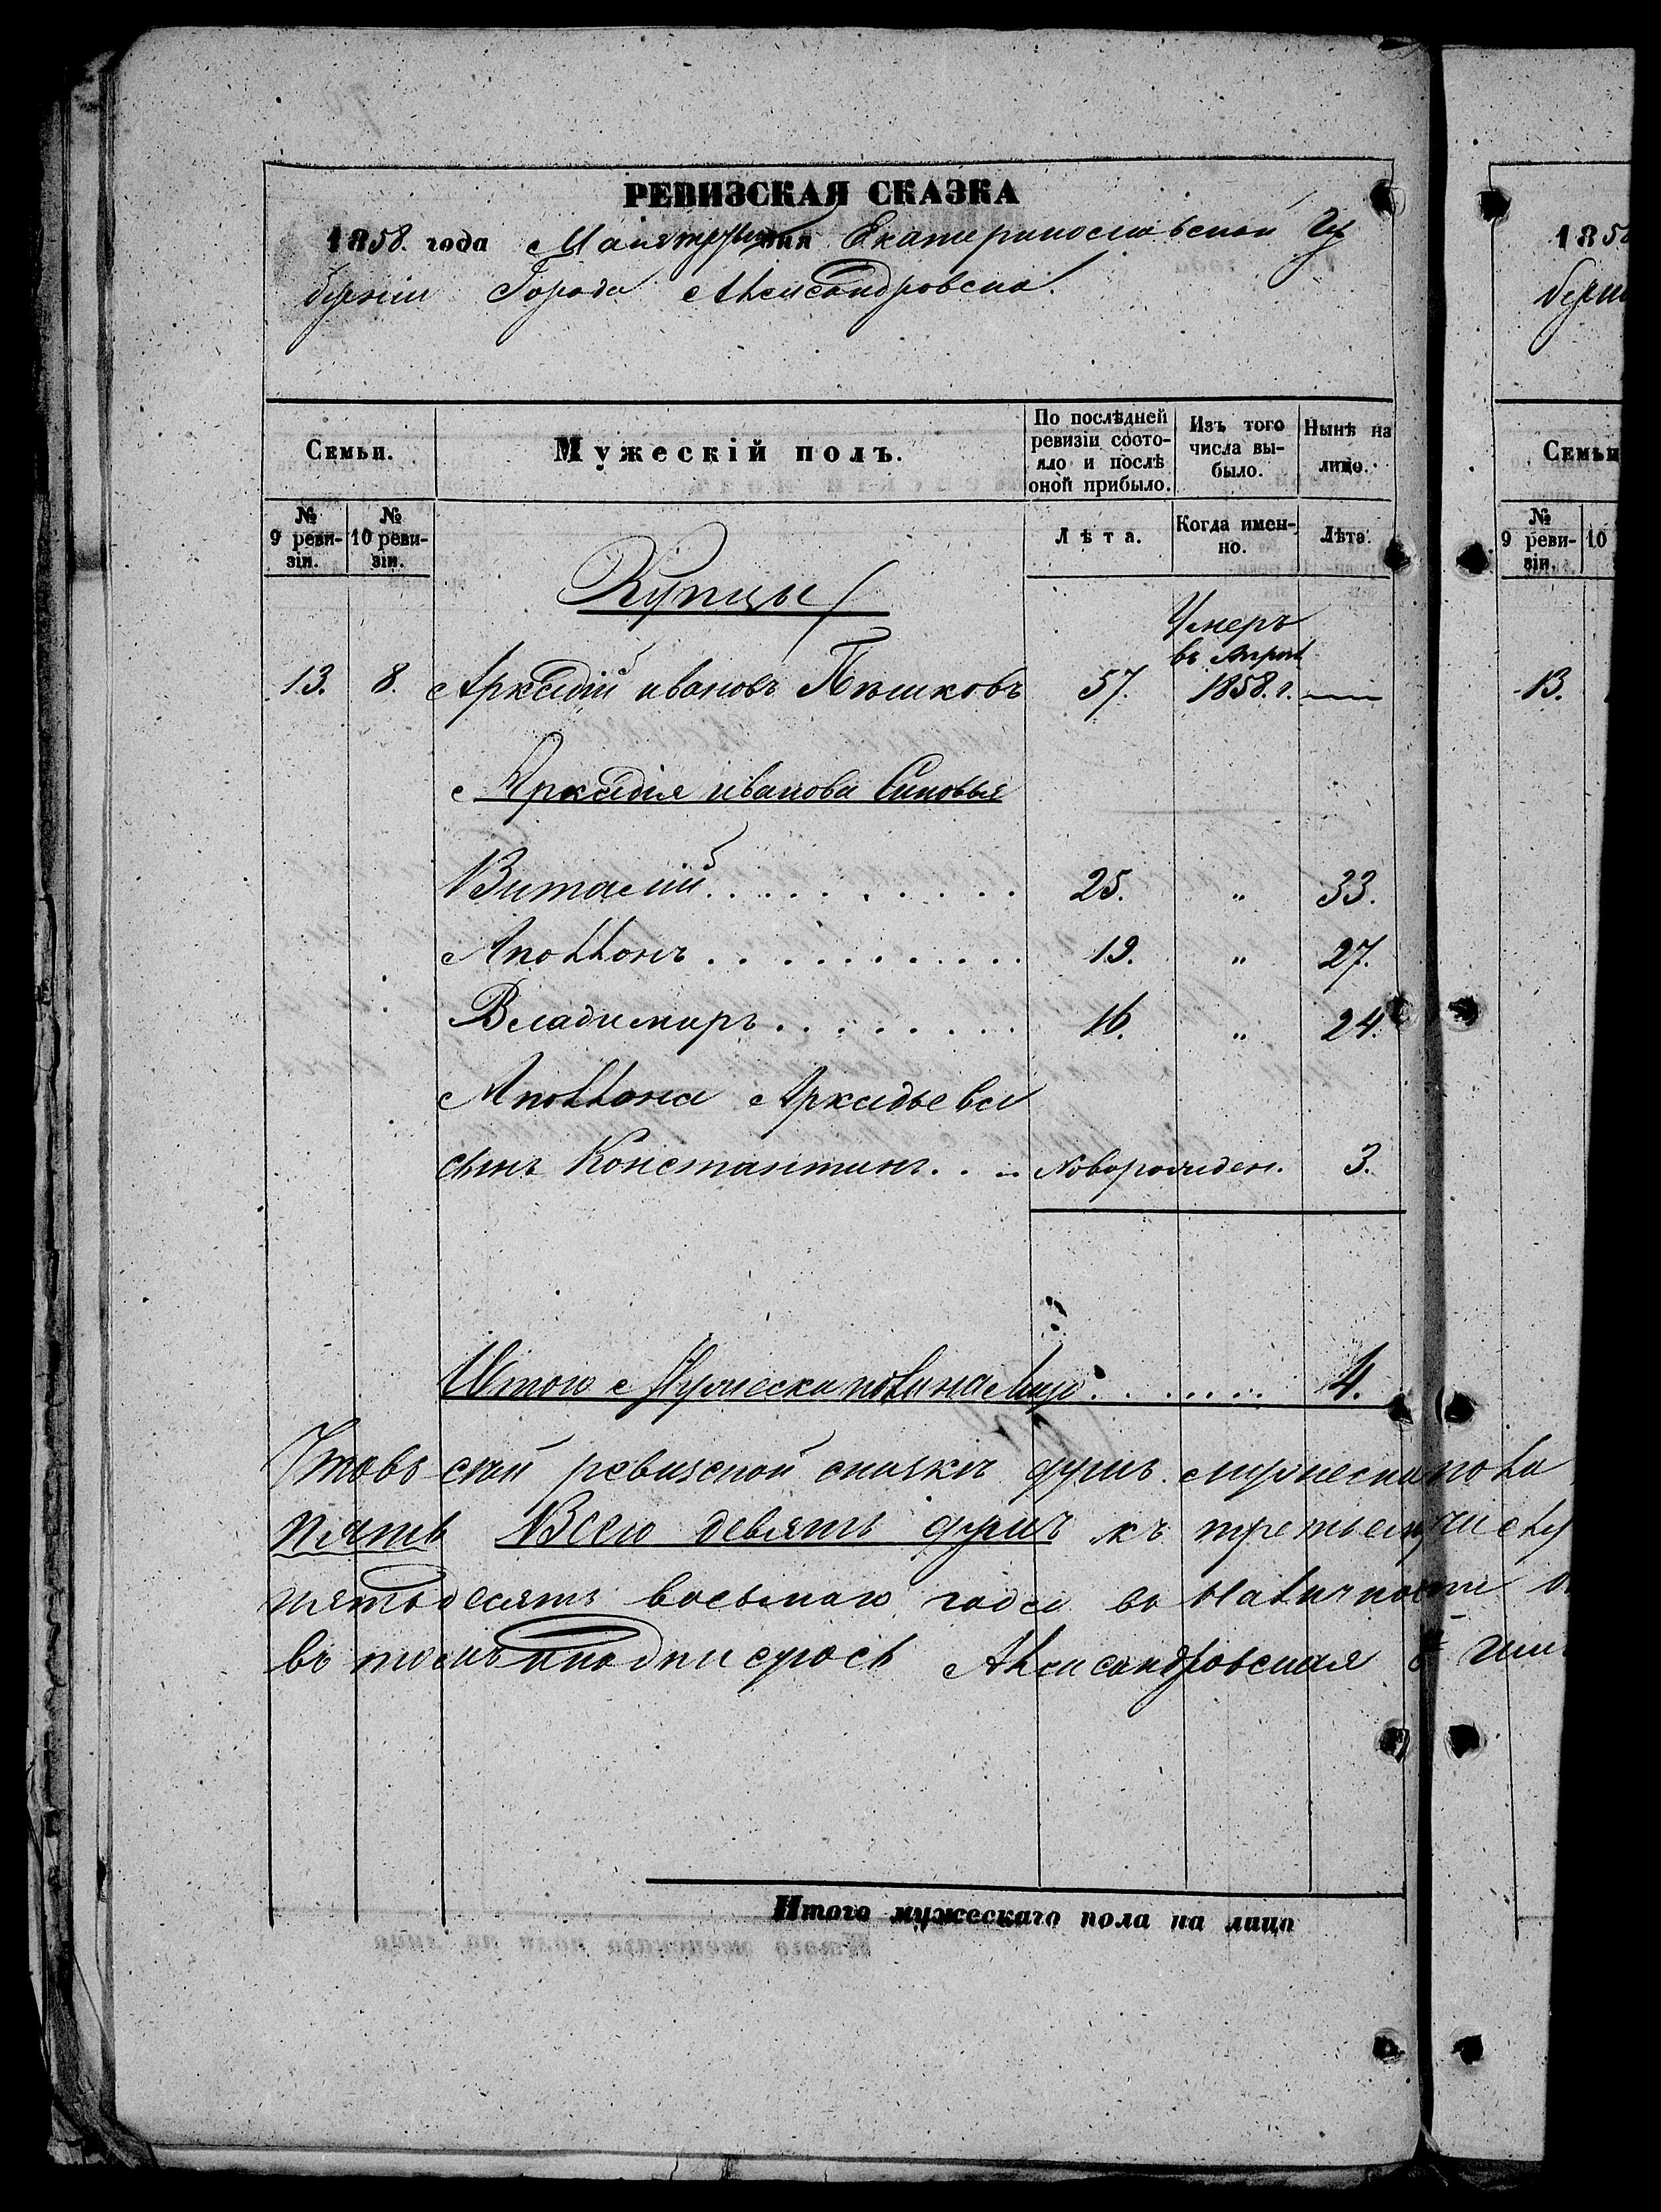 РЕВИЗСКАЯ СКАЗКА
1858. года Мая третьяго дня Екатеринославской Гу
берніи Города Александровска.
Семьи.
Мужескій полъ.
По послѣдней ревизіи состояло и послѣ оной прибыло.
Изъ того числа выбыло.
Нынѣ на лицо.
№ 9 ревизіи.
№ 10 ревизіи.
Лѣта.
Когда именно.
Лѣта.
Купцы
Умеръ
въ Апрѣл
13. 8. Аркадій ивановъ Пѣшковъ 57. 1858. г. —
Аркадія иванова Сыновья
Виталій . . . . . . . . . . 25. " 33.
Аполлонъ . . . . . . . . . . 19. " 27.
Владимиръ . . . . . . . . 16. " 24.
Аполлона Аркадьева
сынъ Константинъ. . .. Новорожден. 3.
Итого Мужеска пола на Лицо . . . . . . . 4.
въ сей ревизской сказкѣ душъ мужеска пола
пять Всего девять душъ къ третьему числу
пятьдесятъ восьмаго года въ Наличности
въ томъ подписуюсь Александровская
Итого мужескаго пола на лицо
1858
берніи
Семьи
№ 9 ревизіи.
10
13.